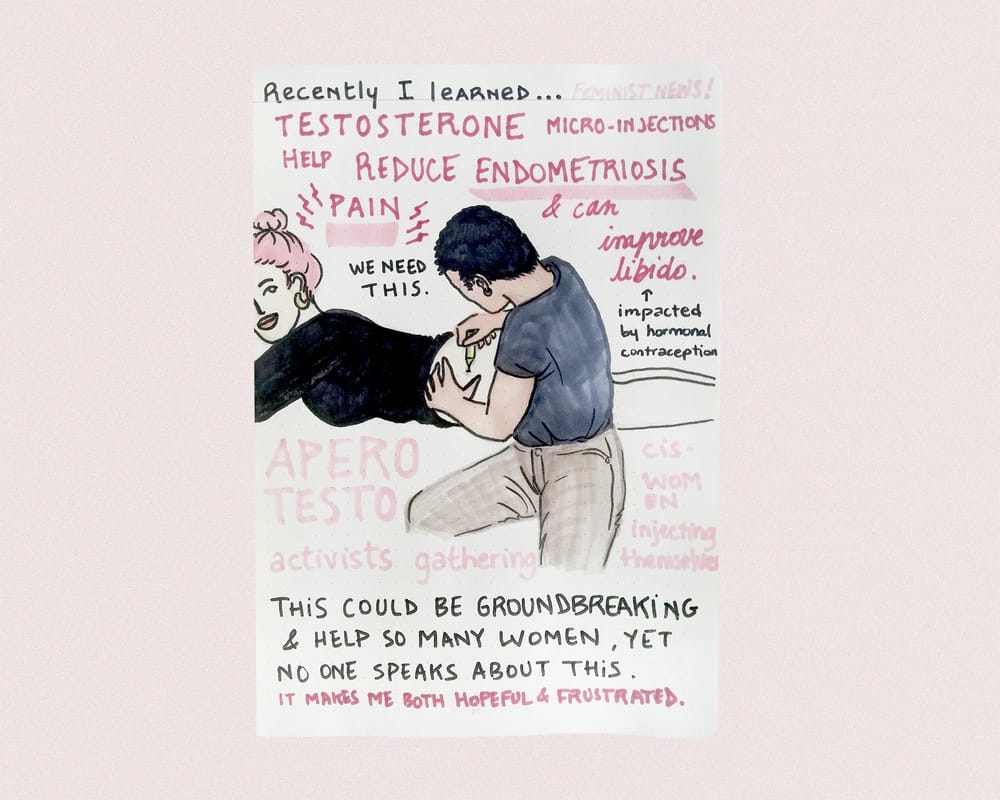 Recently I learned... FEMINIST NEWS!
TESTOSTERONE MICRO-INJECTIONS
HELP REDUCE ENDOMETRIOSIS
PAIN & can
improve
libido.
WE NEED
THIS.
↑
impacted
by hormonal
contraception
APERO
TESTO
activists gathering
cis-
WOM
EN
injecting
themselves
THIS COULD BE GROUNDBREAKING
& HELP SO MANY WOMEN, YET
NO ONE SPEAKS ABOUT THIS.
IT MAKES ME BOTH HOPEFUL & FRUSTRATED.